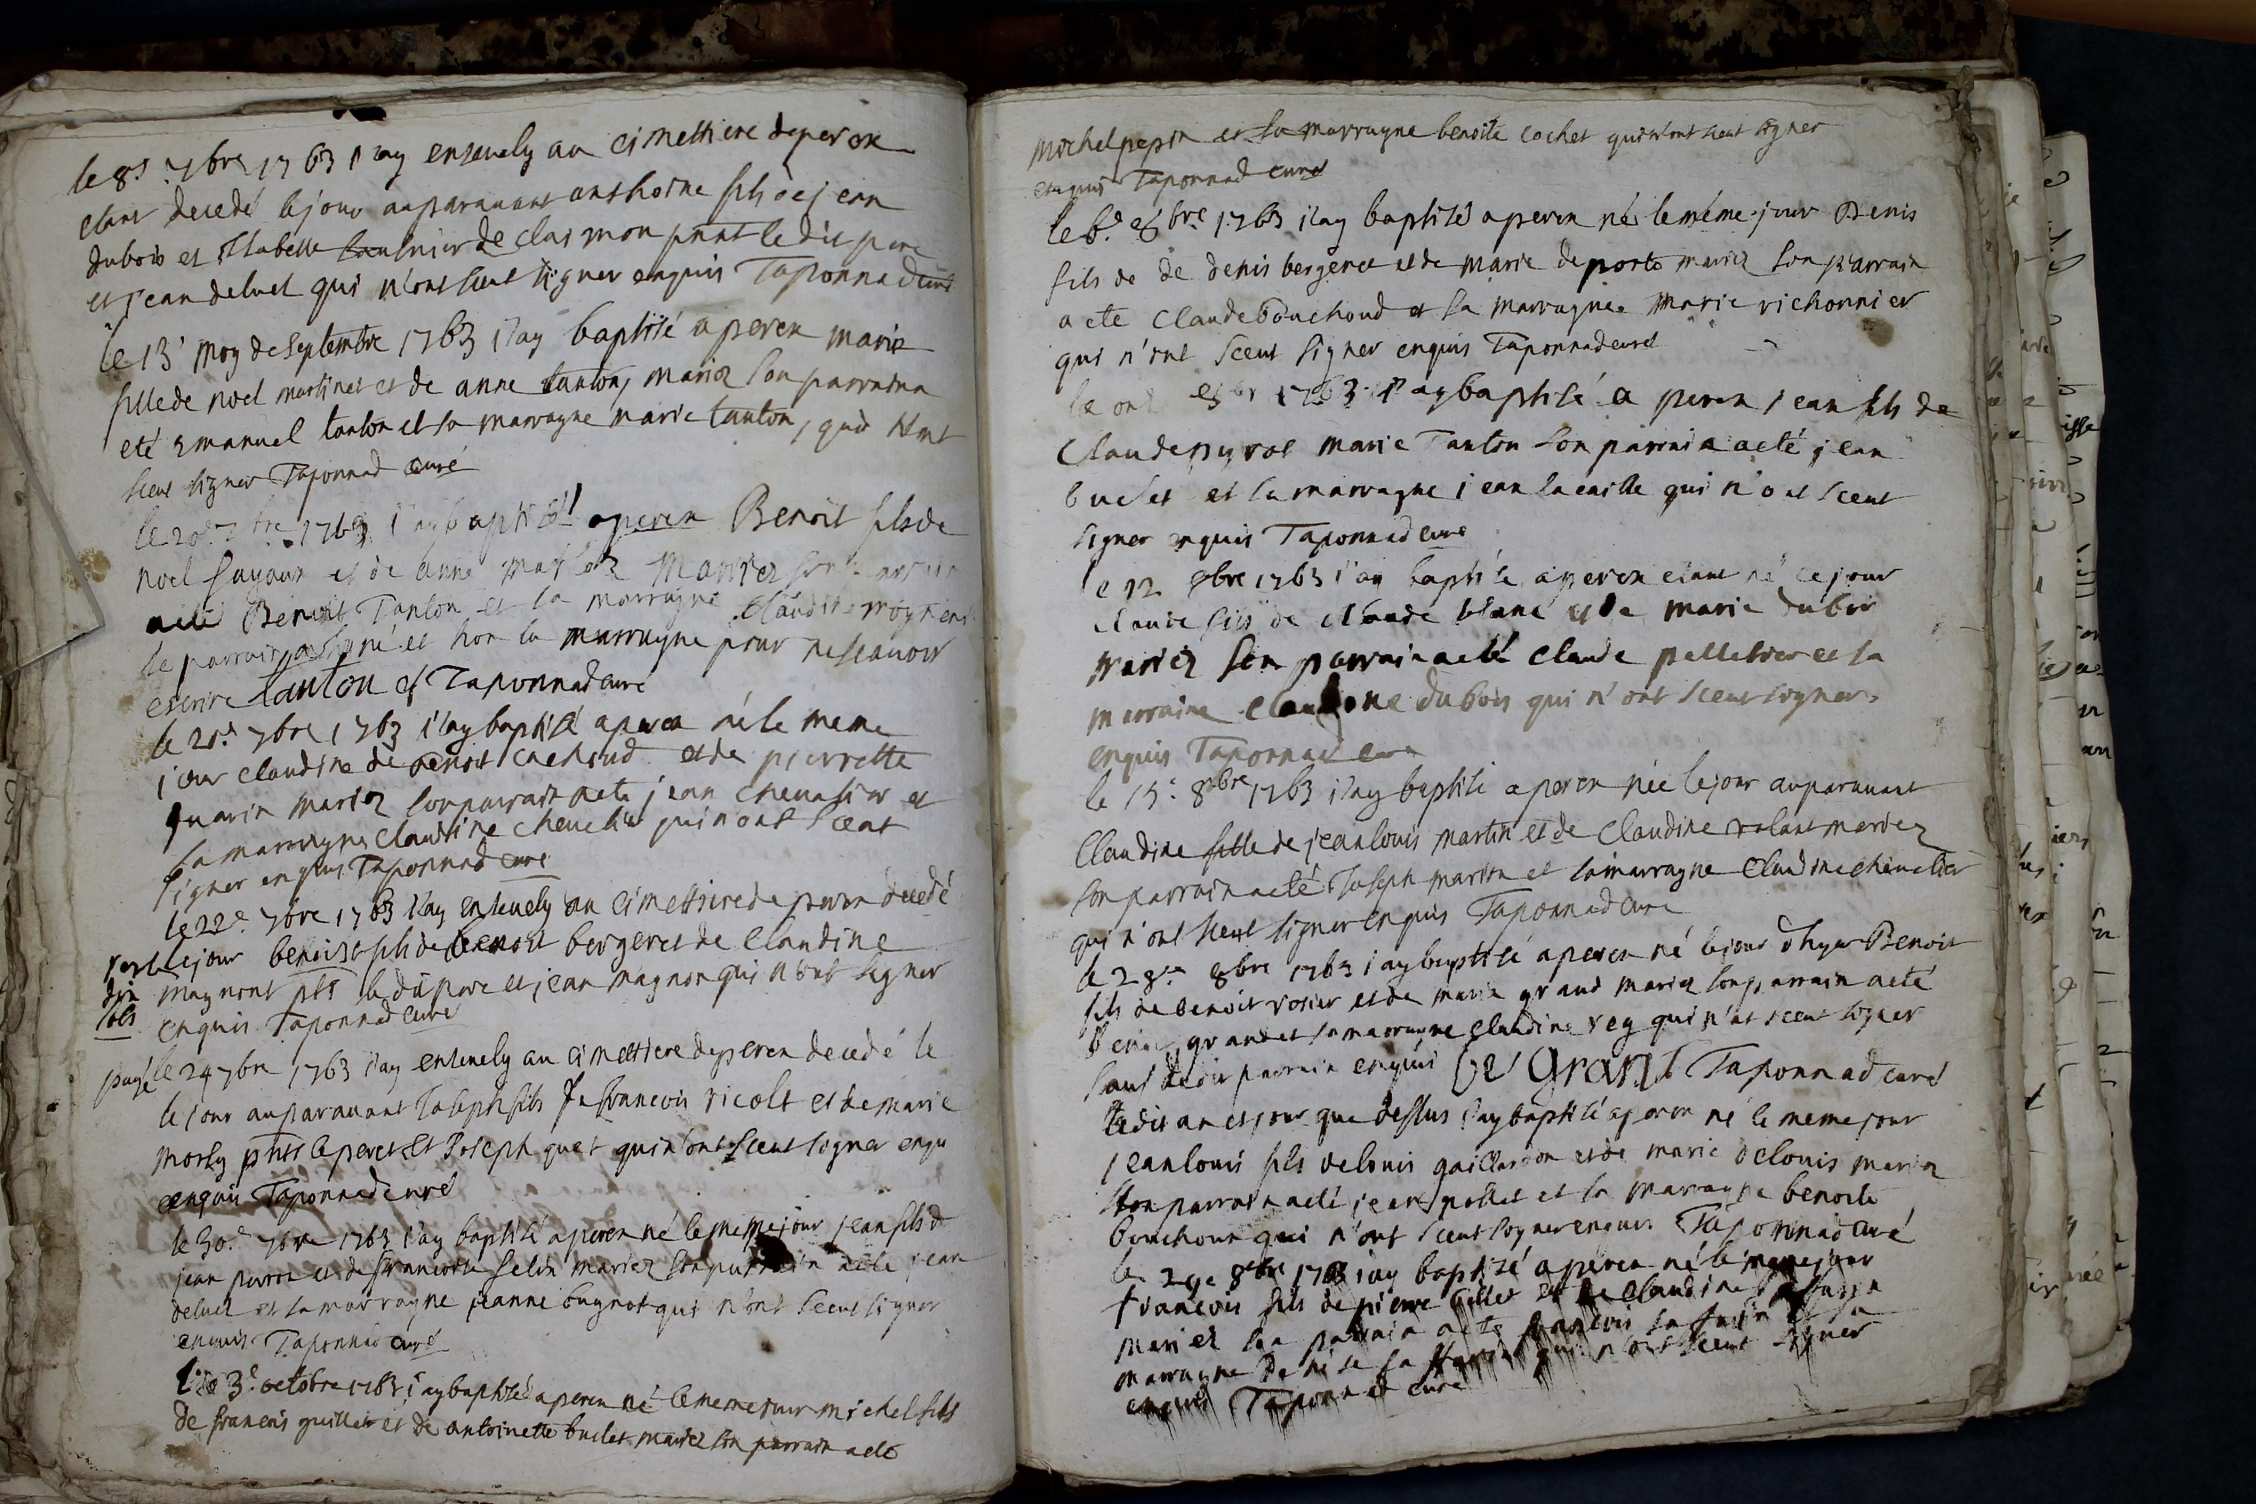 le 8e 7bre 1763 j'ay ensevely au cimettiere de peron
etant decedé le jour auparavant anthoine fils de jean
dubois et Isabelle de clarmon pnnt le dit pere
et jean deluel qui n'ont sceut signer enquis Taponnad curé
le 13e moy de septembre 1763 j'ay baptisé a peren marie
fille de noel martinet et de anne tanton, mariez son parrain a
eté emanuel tanton et sa marrayne marie tanton, qui n'ont
sceut signer Taponnad curé
le 20e 7bre 1763 j'ay baptisé a peren Benoit fils de
noel fayoux et de anne mariez son parrain
a eté Benoit Tanton et la marrayne Claudine
le parrain a signé et non la marrayne pour ne scavoir
escrire Tanton Taponnad curé
le 21e 7bre 1763 j'ay baptisé a peren né le meme
jour claudine de benoit cachoud et de pierrette
guarin mariez son parrain a eté jean chevalier et
sa marrayne claudine chevelier qui n'ont sceut
signer enquis Taponnad curé
le 22e 7bre 1763 j'ay ensevely au cimettiere de peren decedé
le jour benoist fils de benoit bergeret de claudine
magnont pts le dit pere et jean magnon qui n'ont signer
enquis Taponnad curé
payé le 24 7bre 1763 j'ay ensevely au cimettiere de peren decedé le
le jour auparavant Joseph fils de francois ricolt et de marie
morly pnts le pere et Joseph guet qui n'ont sceut signer enqu
enquis Taponnad curé
le 30e 7bre 1763 j'ay baptisé a peren né le meme jour jean fils de
jean perroz et de francoise felix mariez son parrain a eté jean
deluel et sa marrayne jeanne bugnot qui n'ont sceut signer
enquis Taponnad curé
le 3e octobre 1763 j'ay baptisé a peren né le meme jour michel fils
de francois guillet et de antoinette buclet mariez son parrain a eté
michel pepin et sa marrayne benoite cochet qui n'ont sceut signer
enquis Taponnad curé
le 6e 8bre 1763 j'ay baptisé a peren né le méme jour Denis
fils de de denis bergeret et de marie deporte mariez son parrain
a ete claude bouchoud et sa marrayne marie richonnier
qui n'ont sceut signer enquis Taponnad curé
le 1763 j'ay baptisé a peren jean fils de
Claude pyrot marie Tanton son parrain a eté jean
buclet et sa marrayne jean la caille qui n'ont sceut
signer enquis Taponnad curé
le 12 8bre 1763 j'ay baptisé a peren etant né ce jour
claude fils de claude blanc et de marie dubois
mariez son parrain a eté claude pelletier et sa
marraine claudine dubois qui n'ont sceut signer
enquis Taponnad curé
le 15e 8bre 1763 j'ay baptisé a peren née le jour auparavant
Claudine fille de jean louis martin et de Claudine rolant mariez
son parrain a eté Joseph martin et sa marrayne Claudine chevelier
qui n'ont sceut signer enquis Taponnad curé
le 28e 8bre 1763 j'ay baptisé a peren né le jour d'hyer Benoit
fils de benoit rosier et de marie grand mariez son parrain a eté
grand et sa marrayne claudine rey qui n'at sceut signer
sauf le dit parrain enquis Be Grand Taponnad curé
le dit an et jour que dessus j'ay baptisé a peren né le meme jour
jean louis fils de louis gaillardon et de marie delouis mariez
son parrain a eté jean pottet et sa marrayne benoite
bouchoux qui n'ont sceut signer enquis Taponnad curé
le 29e 8bre 1763 j'ay baptisé a peren né le meme jour
francois fils de pierre gillet et de claudine
mariez son parrain a eté francois et sa
marrayne denise qui n'ont sceut signer
enquis Taponnad curé